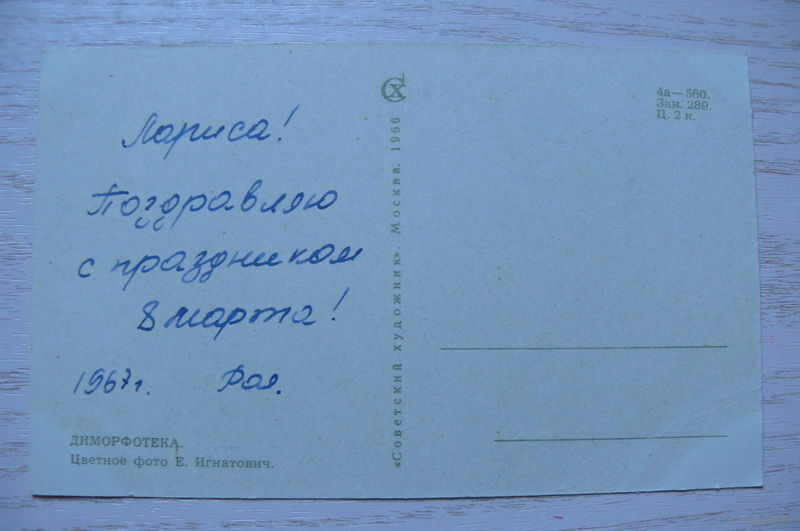 Лариса!
Поздравляю
с праздником
8 марта!
1967г. Рая.
ДИМОРФОТЕКА.
Цветное фото Е. Игнатович.
«Советский художник». Москва. 1966
СХ
4а—560.
Зак. 289.
Ц. 2 к.